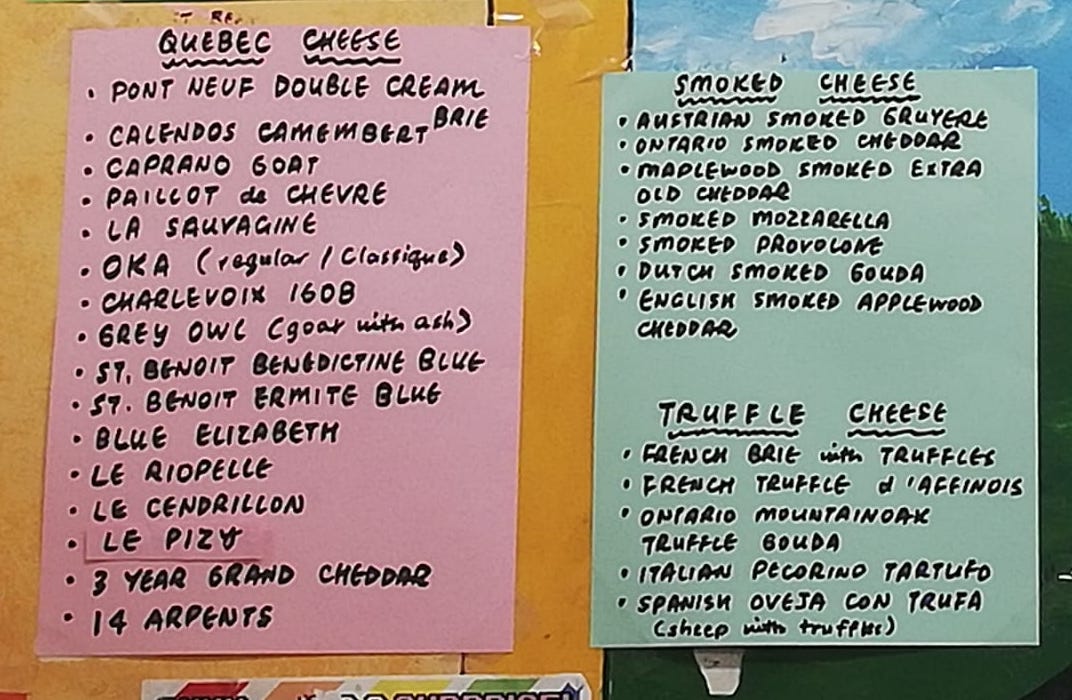 QUEBEC CHEESE
• PONT NEUF DOUBLE CREAM
BRIE
• CALENDOS CAMEMBERT
• CAPRANO GOAT
• PAILLOT de CHEVRE
• LA SAUVAGINE
• OKA (regular / Classique)
• CHARLEVOIX 1608
• GREY OWL (goat with ash)
• ST. BENOIT BENEDICTINE BLUE
• ST. BENOIT ERMITE BLUE
• BLUE ELIZABETH
• LE RIOPELLE
• LE CENDRILLON
• LE PIZY
• 3 YEAR GRAND CHEDDAR
• 14 ARPENTS
SMOKED CHEESE
• AUSTRIAN SMOKED GRUYERE
• ONTARIO SMOKED CHEDDAR
• MAPLEWOOD SMOKED EXTRA
OLD CHEDDAR
• SMOKED MOZZARELLA
• SMOKED PROVOLONE
• DUTCH SMOKED GOUDA
• ENGLISH SMOKED APPLEWOOD
CHEDDAR
TRUFFLE CHEESE
• FRENCH BRIE with TRUFFLES
• FRENCH TRUFFLE d'AFFINOIS
• ONTARIO MOUNTAINOAK
TRUFFLE GOUDA
• ITALIAN PECORINO TARTUFO
• SPANISH OVEJA CON TRUFA
(sheep with truffles)